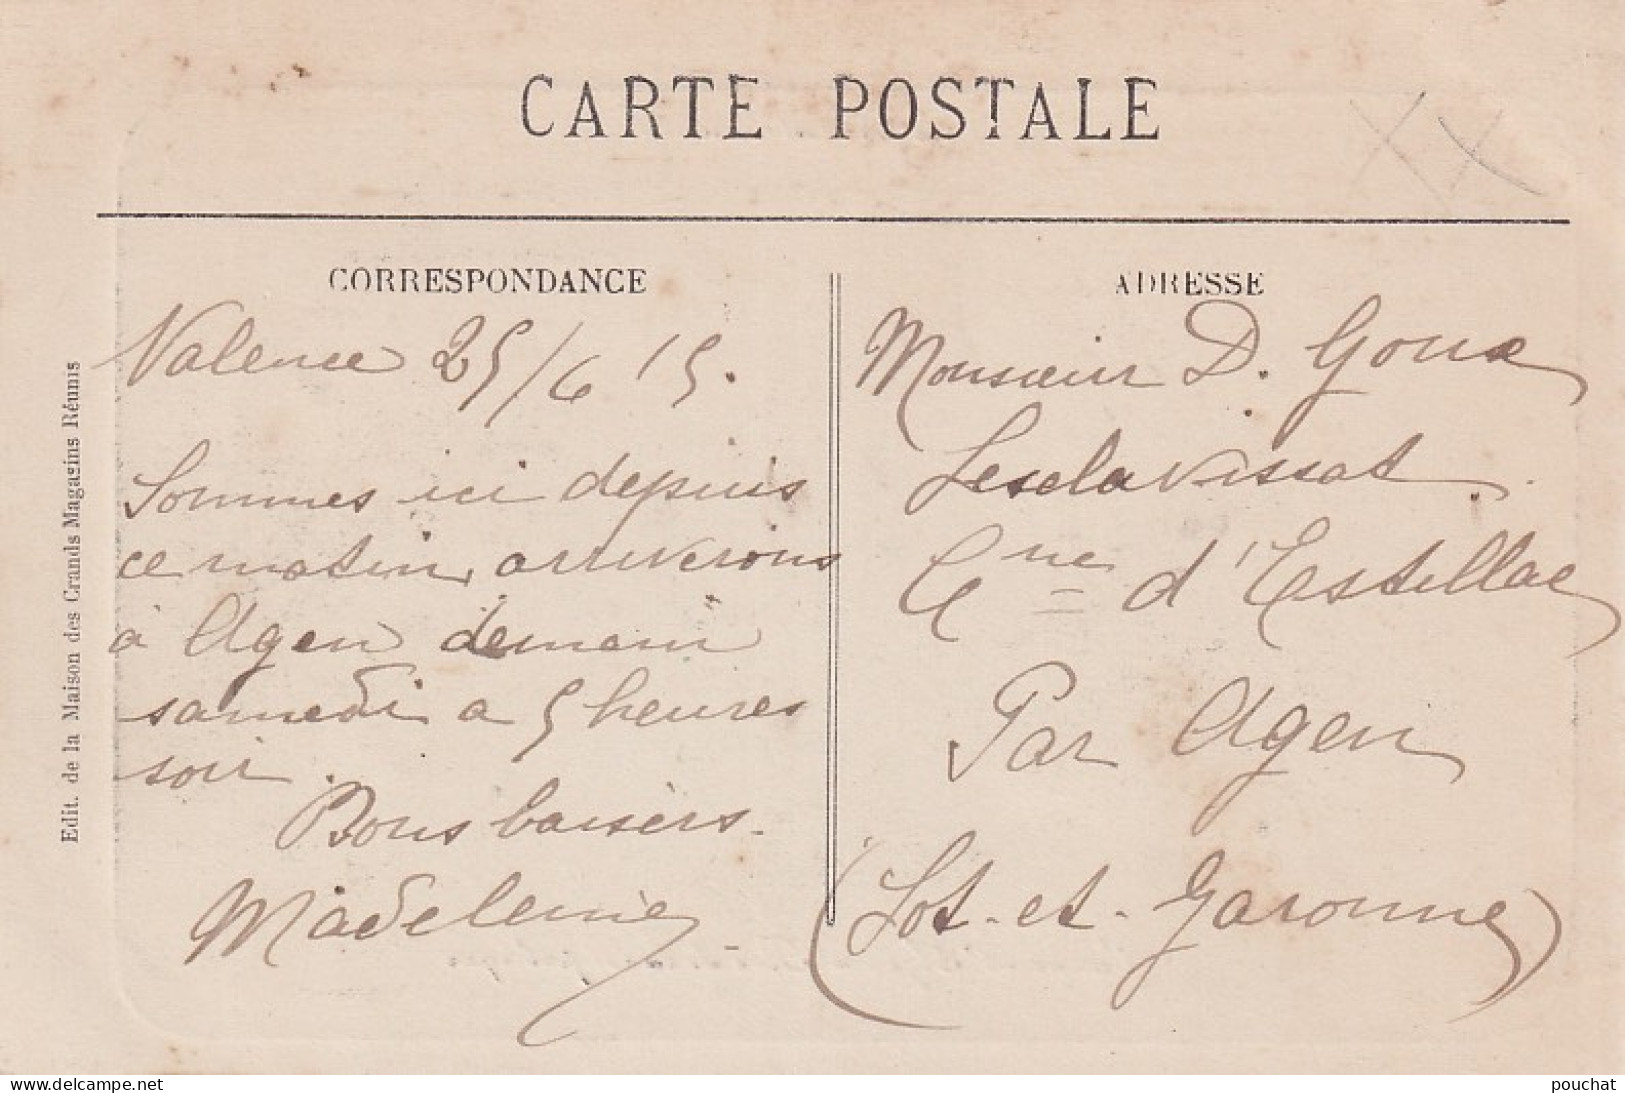 CARTE POSTALE
CORRESPONDANCE
Valence 25/6 15.
Sommes ici depuis
ce matin, arriverons
à Agen demain
samedi a 5 heures
soir.
Bons baisers.
Madeleine
ADRESSE
Monsieur D. Goux
Lesclavissat
Cne d'Estillac
Par Agen
(Lot-et-Garonne)
Edit. de la Maison des Grands Magasins Réunis
www.delcampe.net
pouchat